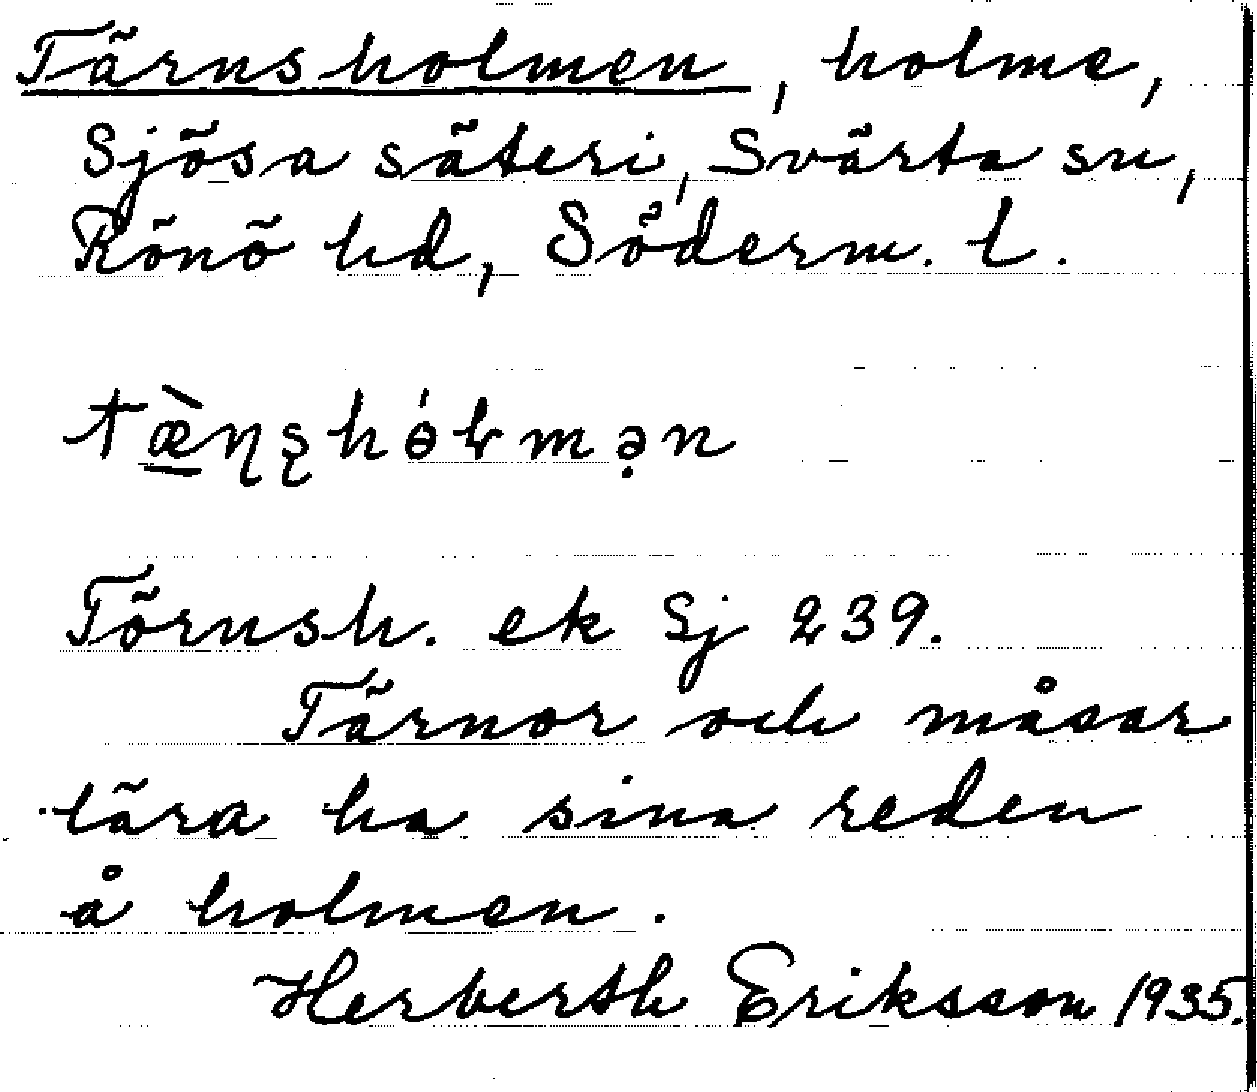 Tärnsholmen, holme,
Sjösa säteri, Svärta sn,
Rönö hd, Söderm. l.
tæ̀ɳʂhɵ́ɫmə̣n
Törnsh. ek Sj 239.
Tärnor och måsar
lära ha sina reden
å holmen.
Herberth Eriksson 1935.